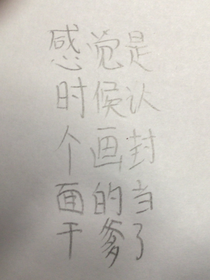 感觉是
时候认
个画封
面的当
干爹了